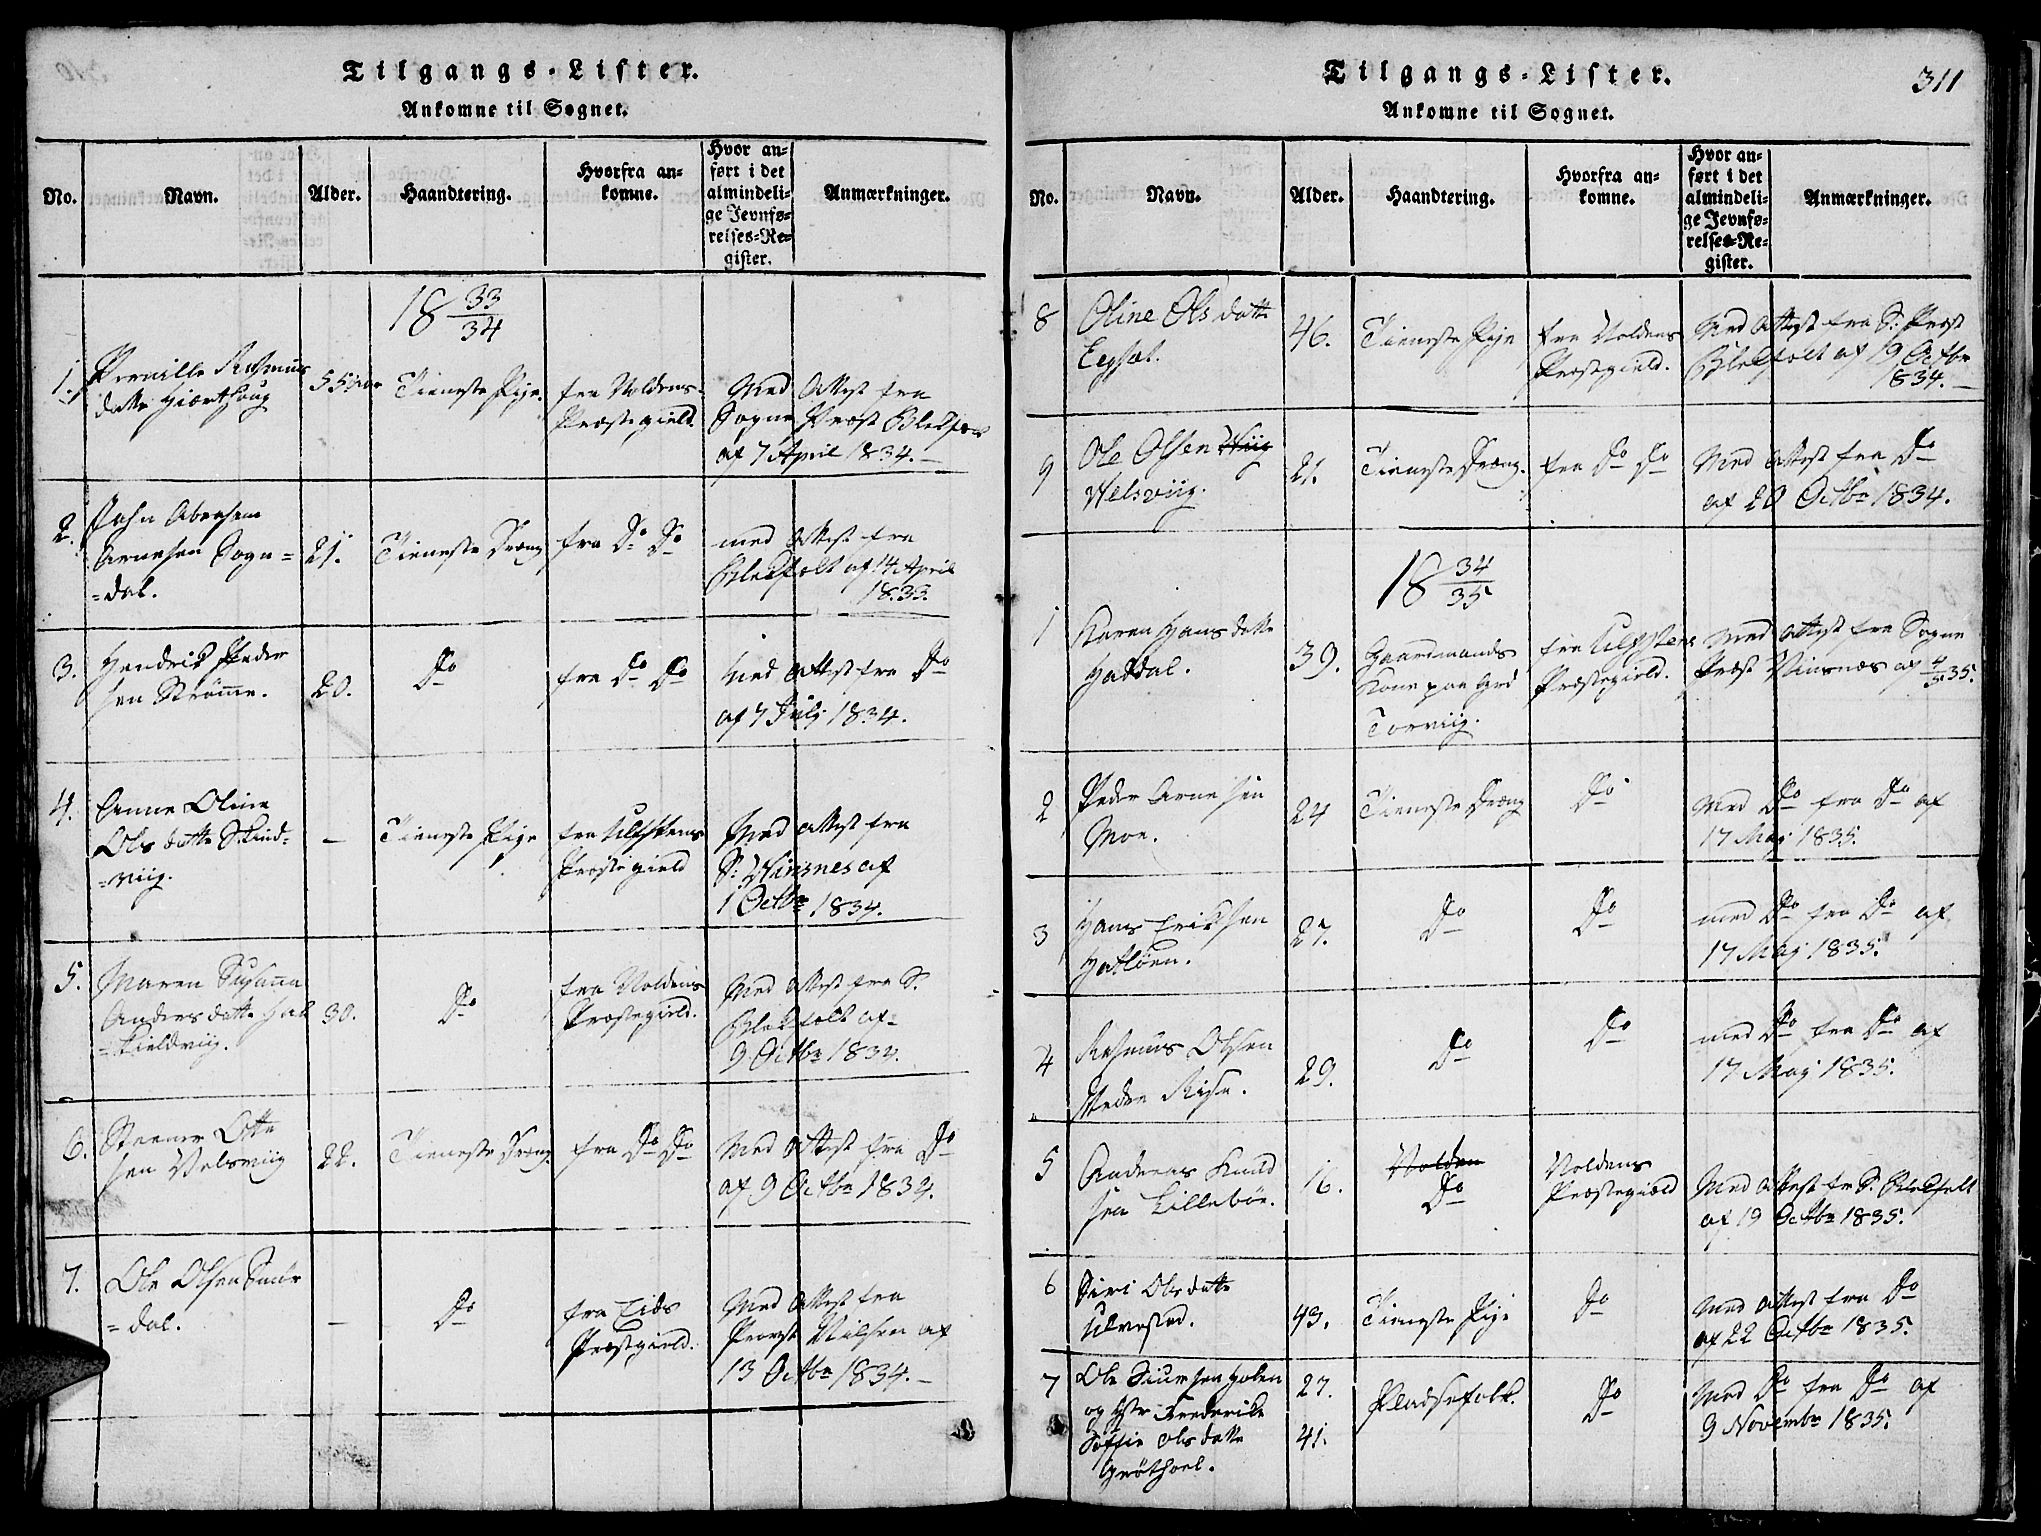 Tilgangs-Lister.
Ankomne til Sognet.
No.
Navn.
Alder.
Haandtering.
Hvorfra an-
komne.
Hvor an-
ført i det
almindeli-
ge Jevnfø-
relses-Re-
gister.
Anmærkninger.
18 33/34
1.
Pernille Rasmus
datte Hiørthoug
55 aar
Tieneste Pige
fra Voldens
Præstegield.
Med Attest fra
Sogne Præst
af 7 April 1834.
2.
John Abraham
Arnesen Sogn=
=dal.
21.
Tieneste Dreng
fra Do Do
med Attest fra
af 14 April
1833.
3.
Hendrik Peder
sen Strømme.
20.
Do
fra Do Do
Med Attest fra Do
af 7 July 1834.
4.
Anne Oline
Ols datte Skind=
=viig.
–
Tieneste Pige
fra Ulfstens
Præstegield
Med Attest fra
S: Winsnes af
1 Octbr 1834.
5.
Maren Susanna
Anders datte Hal
=kieldviig.
30.
Do
fra Voldens
Præstegield.
Med Attest fra S.
af
9 Octbr 1834.
6.
Steener Otte
sen Velsviig
22.
Tieneste Dreng.
fra Do Do
Med Attest fra Do
af 9 Octbr 1834.
7.
Ole Olsen
=dal.
–
Do
fra Eids
Præstgield.
Med Attest fra
Provst Nilsen af
13 Octbr 1834.
Tilgangs-Lister.
311
Ankomne til Sognet.
No.
Navn.
Alder.
Haandtering.
Hvorfra an-
komne.
Hvor an-
ført i det
almindeli-
ge Jevnfø-
relses-Re-
gister.
Anmærkninger.
8
Oline Ols datte
Egset.
46.
Tieneste Pige
fra Voldens
Præstegield.
Med Attest fra S: Præst
af 19 Octbr
1834.
9
Ole Olsen Wiig
Velsviig.
21.
Tieneste Dreng.
fra Do Do
Med Attest fra Do
af 20 Octbr 1834.
18 34/35
1
Karen Hans datte
Haddal.
39.
Gaardmands
Kone paa Grd
Torviig.
fra Ulfstens
Præstegield.
Med Attest fra Sogne
Præst Vinsnæs af 4/5 35.
2
Peder Arne sen
Moe.
24
Tieneste Dreng
Do
Med Do fra Do af
17 Maj 1835.
3
Hans Erik sen
Hatløen.
27.
Do
Do
med Do fra Do af
17 Maj 1835.
4
Rasmus Olsen
Nedre Rise.
29.
Do
Do
med Do fra Do af
17 Maj 1835.
5
Andreas Knud
sen Lillebøe.
16.
Volden
Do
Voldens
Præstegield
Med Attest fr S.
af 19 Octbr 1835.
6
Siri Ols datte
Ulvestad.
43.
Tieneste Pige
Do
Med Attest fra Do
af 22 Octbr 1835.
7
Ole Siursen Holen
og Hstr Frederike
Soffie Ols datte
Grøthoel.
27.
41.
Pladsefolk.
Do
Med Do fra Do af
9 Novembr 1835.